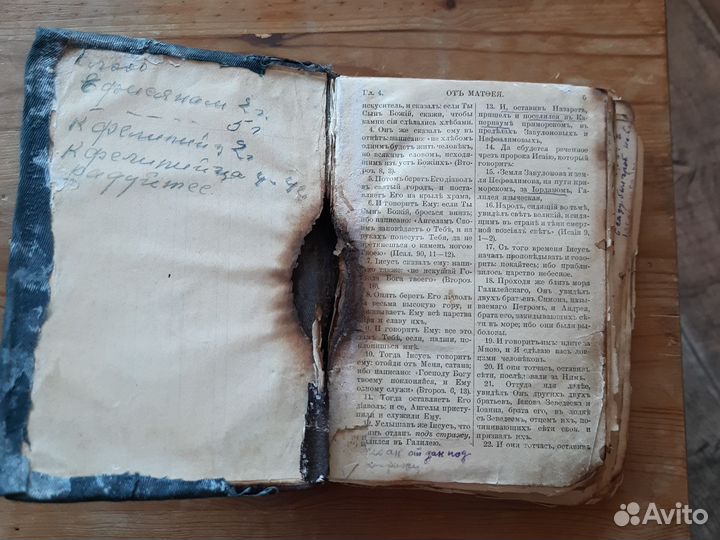 Ефисянам 2 г.
5 г
Гл. 4. ОТЪ МАТѲЕЯ. 5
искуситель, и сказалъ: если Ты
Сынъ Божій, скажи, чтобы
камни сіи сдѣлались хлѣбами.
4. Онъ же сказалъ ему въ
отвѣтъ: написано: «не хлѣбомъ
однимъ будетъ жить человѣкъ,
но всякимъ словомъ, исходя-
щимъ изъ устъ Божіихъ» (Вто-
роз. 8, 3).
5. Потомъ беретъ Его діаволъ
въ святый городъ, и поста-
вляетъ Его на крылѣ храма,
6. И говоритъ Ему: если Ты
Сынъ Божій, бросься внизъ;
ибо написано: «Ангеламъ Сво-
имъ заповѣдаетъ о Тебѣ, и на
рукахъ понесутъ Тебя, да не
преткнешься о камень ногою
Твоею» (Псал. 90, 11—12).
7. Іисусъ сказалъ ему: напи-
сано также: «не искушай Го-
спода Бога твоего» (Второз.
16).
8. Опять беретъ Его діаволъ
на весьма высокую гору, и
показываетъ Ему всѣ царства
міра и славу ихъ,
9. И говоритъ Ему: все это
дамъ Тебѣ, если, падши, по-
клонишься мнѣ.
10. Тогда Іисусъ говоритъ
ему: отойди отъ Меня, сатана;
ибо написано: «Господу Богу
твоему поклоняйся, и Ему
одному служи» (Второз. 6, 13).
11. Тогда оставляетъ Его
діаволъ: и се, Ангелы присту-
пили и служили Ему.
12. Услышавъ же Іисусъ, что
Іоаннъ отданъ подъ стражу,
удалился въ Галилею.
13. И, оставивъ Назаретъ,
пришелъ и поселился въ Ка-
пернаумѣ приморскомъ, въ
предѣлахъ Завулоновыхъ и
Нефѳалимовыхъ,
14. Да сбудется реченное
чрезъ пророка Исаію, который
говоритъ:
15. «Земля Завулонова и зем-
ля Нефѳалимова, на пути при-
морскомъ, за Іорданомъ, Га-
лилея языческая,
16. Народъ, сидящій во тьмѣ,
увидѣлъ свѣтъ великій, и сидя-
щимъ въ странѣ и тѣни смерт-
ной возсіялъ свѣтъ» (Исаіи 9,
1—2).
17. Съ того времени Іисусъ
началъ проповѣдывать и гово-
рить: покайтесь; ибо прибли-
зилось царство небесное.
18. Проходя же близъ моря
Галилейскаго, Онъ увидѣлъ
двухъ братьевъ: Симона, назы-
ваемаго Петромъ, и Андрея,
брата его, закидывающихъ сѣ-
ти въ море; ибо они были ры-
боловы.
19. И говоритъ имъ: идите за
Мною, и Я сдѣлаю васъ лов-
цами человѣковъ.
20. И они тотчасъ, оставивъ
сѣти, послѣдовали за Нимъ.
21. Оттуда идя далѣе,
увидѣлъ Онъ другихъ двухъ
братьевъ, Іакова Зеведеева и
Іоанна, брата его, въ лодкѣ
съ Зеведеемъ, отцемъ ихъ, по-
чинивающихъ сѣти свои, и
призвалъ ихъ.
22. И они тотчасъ, оставивъ
от дан под
Avito